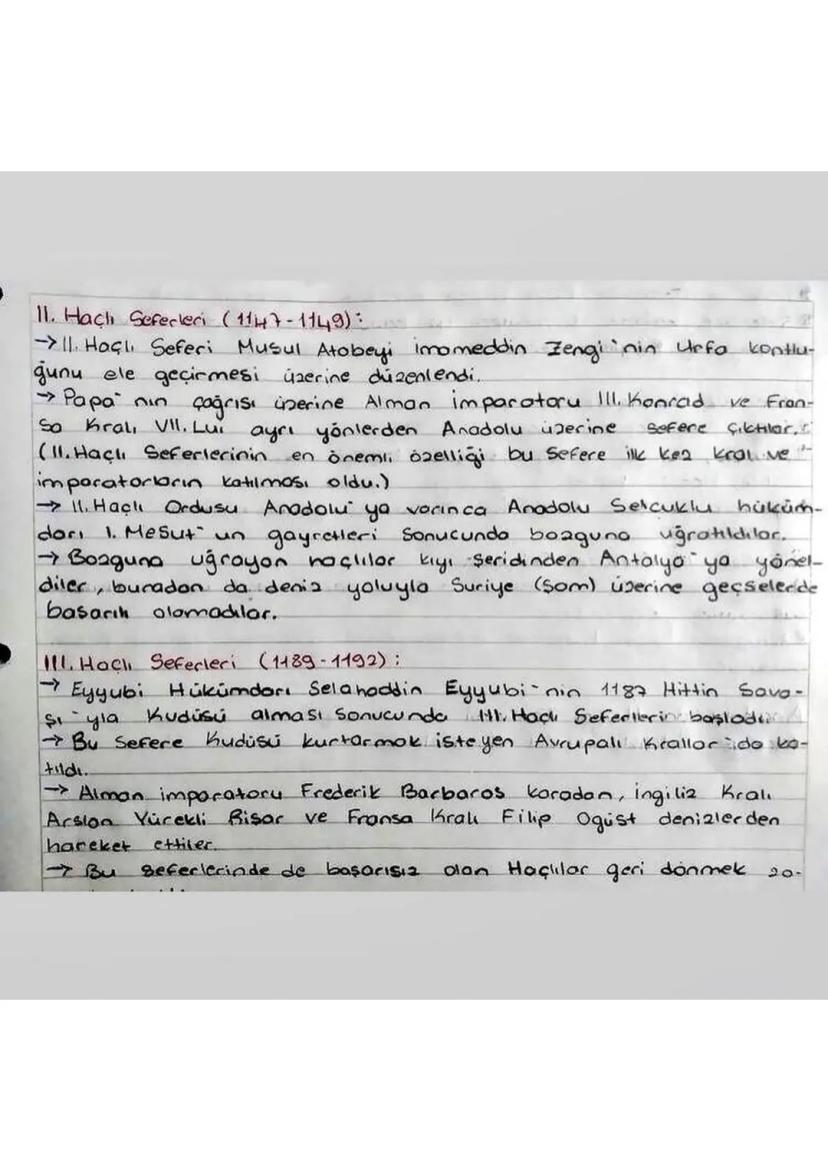 II. Haçlı Seferleri (1147-1149):
→ II. Haçlı Seferi Musul Atabeyi imameddin Zengi'nin Urfa kontlu-
ğunu ele geçirmesi üzerine düzenlendi.
→ Papa'nın çağrısı üzerine Alman imparatoru III. Konrad ve Fran-
sa Kralı VII. Lui ayrı yönlerden Anadolu üzerine sefere çıktılar.
(II. Haçlı Seferlerinin en önemli özelliği bu sefere ilk kez kral ve
imparatorların katılması oldu.)
→ II. Haçlı Ordusu Anadolu'ya varınca Anadolu Selçuklu hüküm-
darı I. Mesut'un gayretleri sonucunda bozguna uğratıldılar.
→ Bozguna uğrayan haçlılar kıyı şeridinden Antalya'ya yönel-
diler, buradan da deniz yoluyla Suriye (Şam) üzerine geçselerde
başarılı olamadılar.
III. Haçlı Seferleri (1189-1192):
→ Eyyubi Hükümdarı Selahaddin Eyyubi'nin 1187 Hittin Sava-
şı'yla Kudüsü alması sonucunda III. Haçlı Seferilerin başladı.
→ Bu sefere Kudüsü kurtarmak isteyen Avrupalı Krallar'da ka-
tıldı.
→ Alman imparatoru Frederik Barbaros karadan, ingiliz Kralı
Arslan Yürekli Rişar ve Fransa Kralı Filip Ogüst denizlerden
hareket ettiler.
→ Bu seferlerinde de başarısız olan Haçlılar geri dönmek zo-